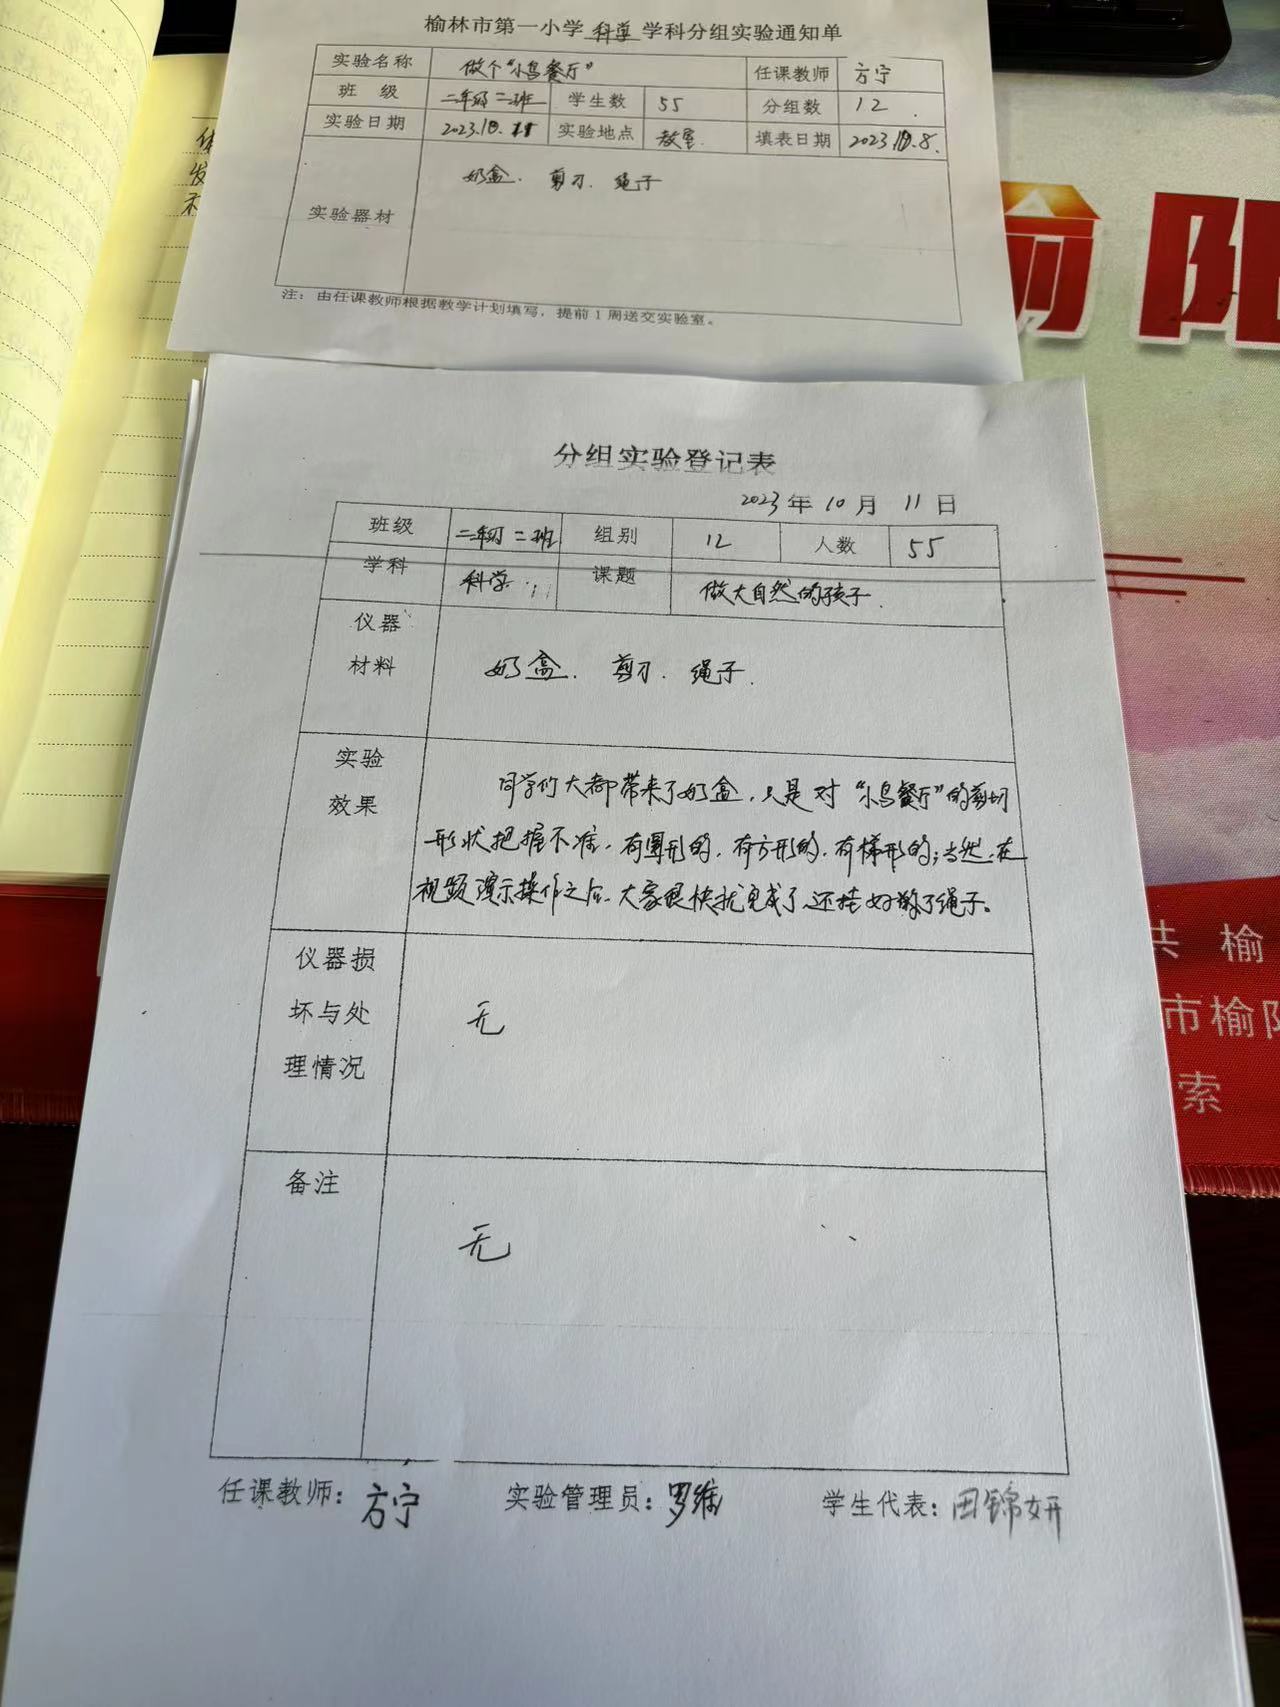 榆林市第一小学 科学 学科分组实验通知单
实验名称 做个“小鸟餐厅” 任课教师 方宁
班 级 二年级二班 学生数 55 分组数 12
实验日期 2023.10.11 实验地点 教室. 填表日期 2023.10.8.
实验器材 奶盒. 剪刀. 绳子
注：由任课教师根据教学计划填写，提前1周送交实验室。
分组实验登记表
2023年10月11日
班级 二年级二班 组别 12 人数 55
学科 科学 课题 做大自然的孩子.
仪器 材料 奶盒. 剪刀. 绳子.
实验 效果
同学们大都带来了奶盒，只是对“小鸟餐厅”的剪切
形状把握不准，有圆形的，有方形的，有梯形的；当然，在
视频演示操作之后，大家很快就完成了，还挂好了绳子。
仪器损
坏与处 无
理情况
备注
无
任课教师：方宁 实验管理员：罗维 学生代表：田锦妍
阳
共 榆
市榆阳
索